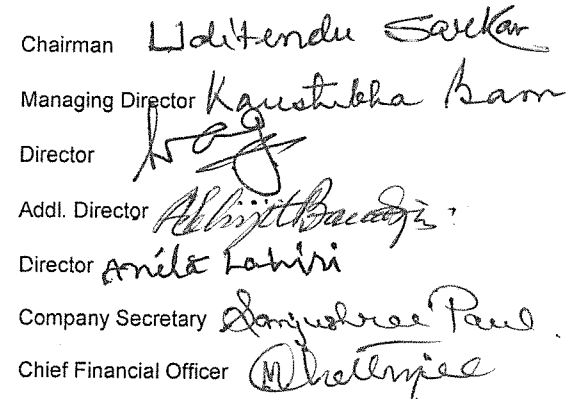 Chairman Uditendu Sarkar
Managing Director Kaustubha Basu
Director
Addl. Director Abhijit
Director Anita Lahiri
Company Secretary Sanjushree Paul
Chief Financial Officer M Chatterjee